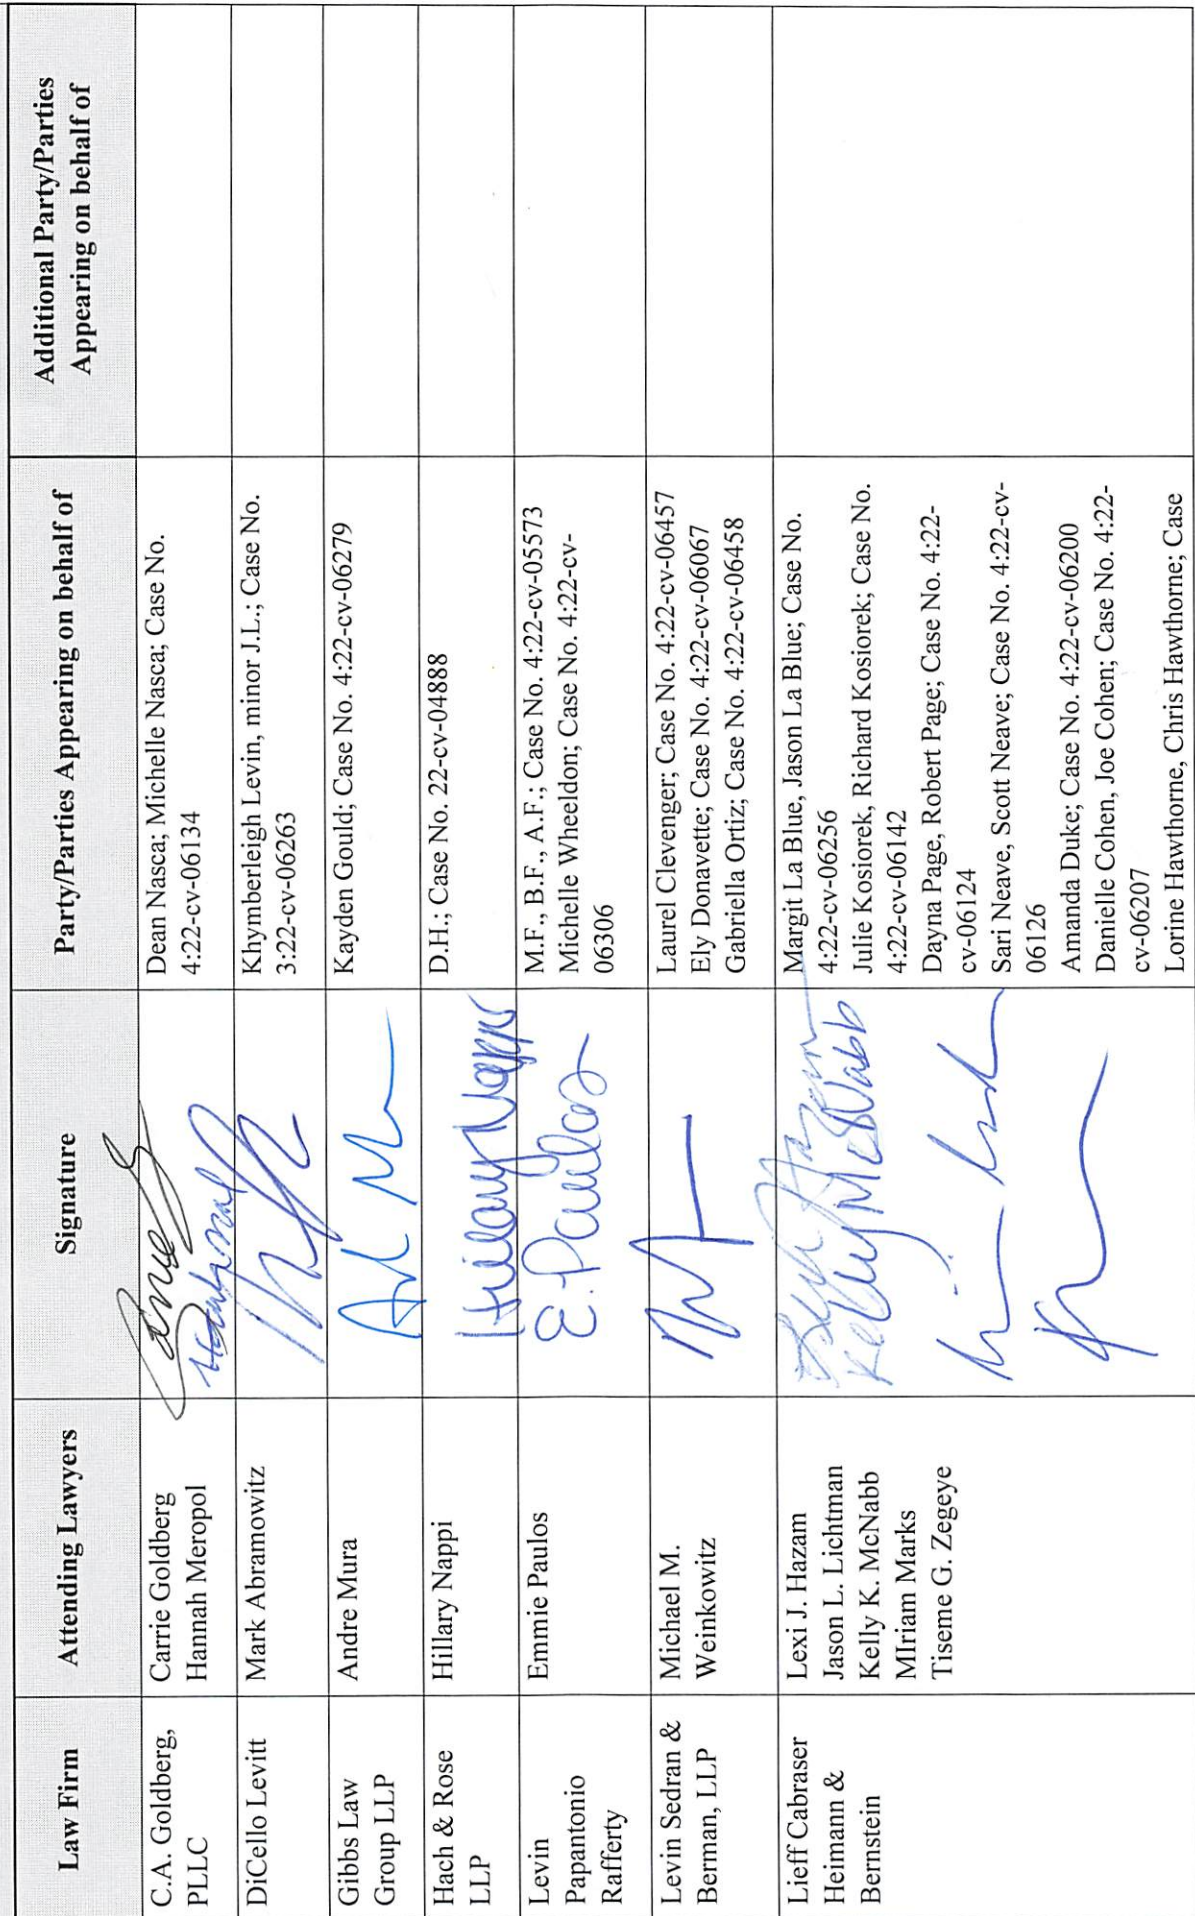 Law Firm
Attending Lawyers
Signature
Party/Parties Appearing on behalf of
Additional Party/Parties
Appearing on behalf of
C.A. Goldberg,
PLLC
Carrie Goldberg
Hannah Meropol
Dean Nasca; Michelle Nasca; Case No.
4:22-cv-06134
DiCello Levitt
Mark Abramowitz
Khymberleigh Levin, minor J.L.; Case No.
3:22-cv-06263
Gibbs Law
Group LLP
Andre Mura
Kayden Gould; Case No. 4:22-cv-06279
Hach & Rose
LLP
Hillary Nappi
Hillary Nappi
D.H.; Case No. 22-cv-04888
Levin
Papantonio
Rafferty
Emmie Paulos
E. Paulos
M.F., B.F., A.F.; Case No. 4:22-cv-05573
Michelle Wheeldon; Case No. 4:22-cv-
06306
Levin Sedran &
Berman, LLP
Michael M.
Weinkowitz
Laurel Clevenger; Case No. 4:22-cv-06457
Ely Donavette; Case No. 4:22-cv-06067
Gabriella Ortiz; Case No. 4:22-cv-06458
Lieff Cabraser
Heimann &
Bernstein
Lexi J. Hazam
Jason L. Lichtman
Kelly K. McNabb
MIriam Marks
Tiseme G. Zegeye
Kelly McNabb
Margit La Blue, Jason La Blue; Case No.
4:22-cv-06256
Julie Kosiorek, Richard Kosiorek; Case No.
4:22-cv-06142
Dayna Page, Robert Page; Case No. 4:22-
cv-06124
Sari Neave, Scott Neave; Case No. 4:22-cv-
06126
Amanda Duke; Case No. 4:22-cv-06200
Danielle Cohen, Joe Cohen; Case No. 4:22-
cv-06207
Lorine Hawthorne, Chris Hawthorne; Case